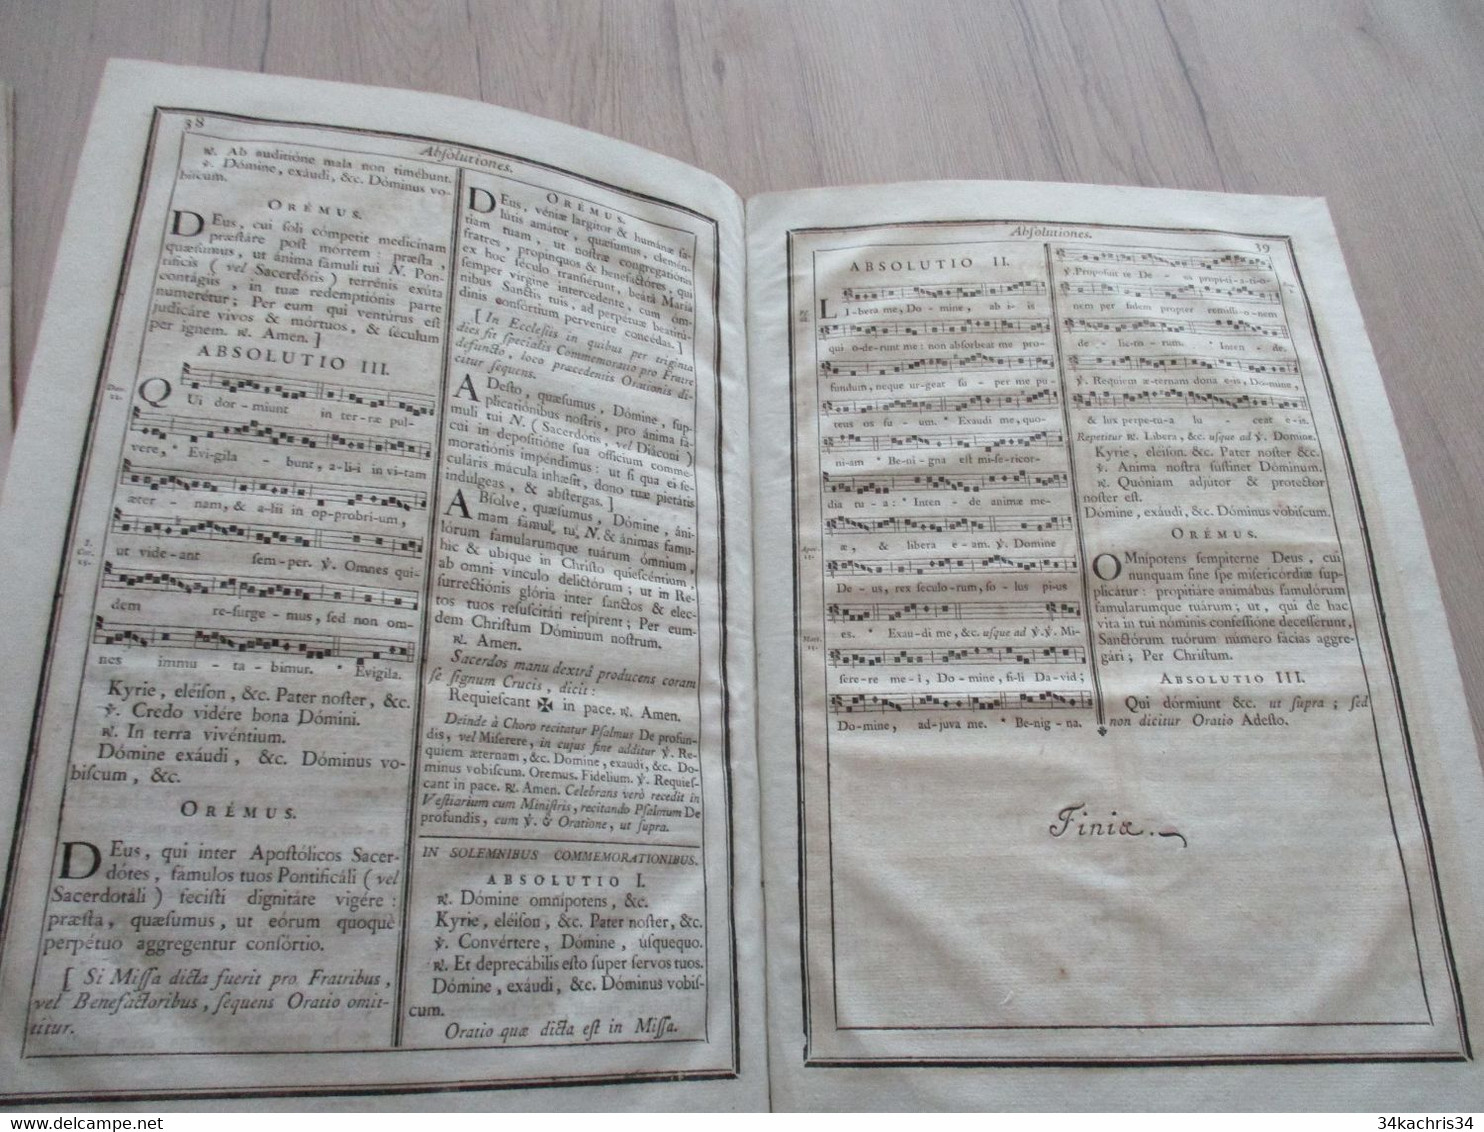 38
Abſolutiones.
℟. Ab auditióne mala non timébunt.
℣. Dómine, exáudi, &c. Dóminus vo-
biſcum.
ORÉMUS.
DEus, cui ſoli cómpetit medicinam
præſtáre poſt mortem: præſta,
quæſumus, ut ánima fámuli tui N. Pon-
tificis (vel Sacerdótis) terrénis exúta
contágiis, in tuæ redemptiónis parte
numerétur; Per eum qui ventúrus eſt
judicáre vivos & mórtuos, & ſéculum
per ignem. ℟. Amen.]
ABSOLUTIO III.
QUi dor-miunt in ter-ræ pul-
vere, * Evigila-bunt, a-li-i in vi-tam
æter-nam, & a-lii in op-probri-um,
ut vide-ant sem-per. ℣. Omnes qui-
dem re-ſurge-mus, ſed non om-
nes immu-ta-bimur. * Evigila.
Kyrie, eléiſon, &c. Pater noſter, &c.
℣. Credo vidére bona Dómini.
℟. In terra vivéntium.
Dómine exáudi, &c. Dóminus vo-
biſcum, &c.
ORÉMUS.
DEus, qui inter Apoſtólicos Sacer-
dótes, fámulos tuos Pontificáli (vel
Sacerdotáli) feciſti dignitáte vigére:
præſta, quæſumus, ut eórum quoque
perpétuo aggregentur conſórtio.
[ Si Miſſa dicta fuerit pro Fratribus,
vel Benefactoribus, ſequens Oratio omit-
titur.
ORÉMUS.
DEus, véniæ largitor & humánæ ſa-
lútis amátor, quæſumus, clemén-
tiam tuam, ut noſtræ congregatiónis
fratres, propinquos & benefactóres, qui
ex hoc ſéculo tranſiérunt, beátâ Mariâ
ſemper virgine intercedente, cum óm-
nibus Sanctis tuis, ad perpétuæ beatitú-
dinis conſortium pervenire concédas.]
[ In Eccleſiis in quibus per triginta
dies fit ſpecialis Commemoratio pro Fratre
defuncto, loco præcedentis Orationis di-
citur ſequens.
ADeſto, quæſumus, Dómine, ſup-
plicatiónibus noſtris, pro ánima fá-
muli tui N. (Sacerdótis, vel Diáconi)
cui in depoſitióne ſua officium comme-
morationis impéndimus: ut ſi qua ei ſe-
culáris mácula inhæſit, dono tuæ pietátis
indulgeas, & abſtergas.]
ABſolve, quæſumus, Dómine, áni-
mam famuli tui N. & ánimas famu-
lórum famularumque tuárum ómnium,
hic & ubique in Chriſto quieſcéntium,
ab omni vinculo delictórum; ut in Re-
ſurrectiónis glória inter ſanctos & elec-
tos tuos reſuſcitári reſpirent; Per eum-
dem Chriſtum Dóminum noſtrum.
℟. Amen.
Sacerdos manu dextrâ producens coram
ſe ſignum Crucis, dicit:
Requieſcant ✠ in pace. ℟. Amen.
Deinde à Choro recitatur Pſalmus De profun-
dis, vel Miſerere, in cujus fine additur ℣. Re-
quiem æternam, &c. Domine, exaudi, &c. Do-
minus vobiſcum. Oremus. Fidelium. ℣. Requieſ-
cant in pace. ℟. Amen. Celebrans verò recedit in
Veſtiarium cum Miniſtris, recitando Pſalmum De
profundis, cum ℣. & Oratione, ut ſupra.
IN SOLEMNIBUS COMMEMORATIONIBUS.
ABSOLUTIO I.
℟. Dómine omnípotens, &c.
Kyrie, eléiſon, &c. Pater noſter, &c.
℣. Convértere, Dómine, úſquequo.
℟. Et deprecábilis eſto ſuper ſervos tuos.
Dómine, exáudi, &c. Dóminus vobiſ-
cum.
Oratio quæ dicta eſt in Miſſa.
Abſolutiones.
39
ABSOLUTIO II.
LI-bera me, Do-mine, ab i-is
qui o-derunt me: non abſorbeat me pro-
fundum, neque ur-geat ſu-per me pu-
teus os ſu-um. * Exaudi me, quo-
ni-am * Be-ni-gna eſt mi-ſe-ricor-
dia tu-a: * Inten-de animæ me-
æ, & libera e-am. ℣. Domine
De-us, rex ſeculo-rum, ſo-lus pi-us
es. * Exau-di me, &c. uſque ad ℣. ℣. Mi-
ſere-re me-i, Do-mine, fi-li Da-vid;
Do-mine, ad-juva me. * Be-nig-na.
℣. Propoſuit te De-us propi-ti-a-tio-
nem per fidem propter remiſſi-o-nem
de-lic-to-rum. * Inten-de.
℣. Requiem æ-ternam dona e-is, Do-mine,
& lux perpe-tu-a lu-ceat e-is.
Repetitur ℟. Libera, &c. uſque ad ℣. Domine.
Kyrie, eléiſon. &c. Pater noſter &c.
℣. Anima noſtra ſuſtinet Dóminum.
℟. Quóniam adjútor & protéctor
noſter eſt.
Dómine, exáudi, &c. Dóminus vobiſcum.
ORÉMUS.
OMnípotens ſempiterne Deus, cui
nunquam ſine ſpe miſericordiæ ſup-
plicátur: propitiáre animábus famulórum
famularumque tuárum; ut, qui de hac
vita in tui nóminis confeſſióne deceſſerunt,
Sanctórum tuórum número facias aggre-
gári; Per Chriſtum.
ABSOLUTIO III.
Qui dórmiunt &c. ut ſupra; ſed
non dicitur Oratio Adeſto.
Finis.
34kachris34